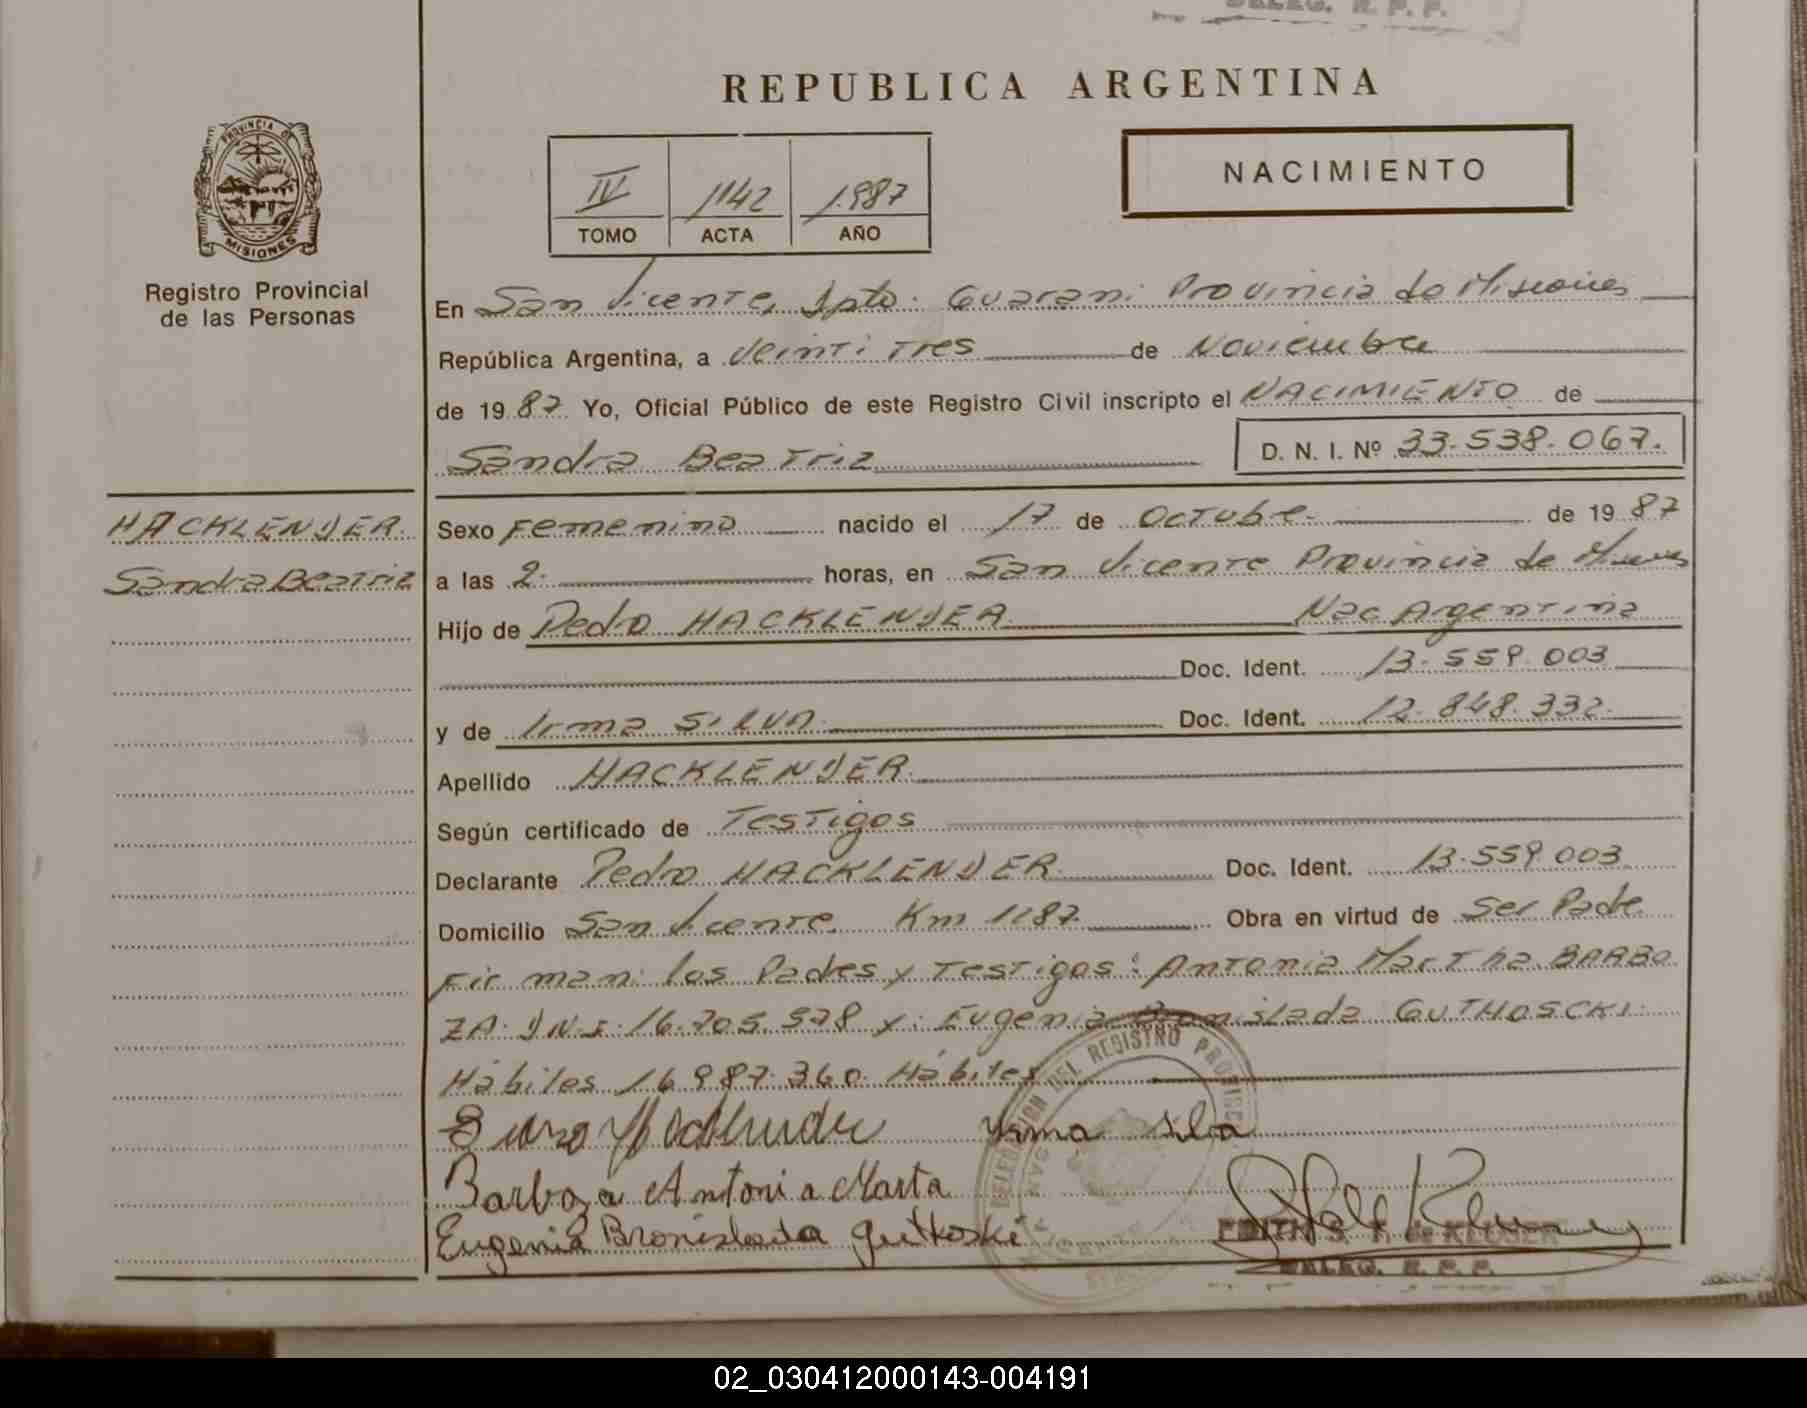 DELEG. R. P. P.
REPUBLICA ARGENTINA
PROVINCIA DE
MISIONES
Registro Provincial
de las Personas
IV 1142 1.987
TOMO ACTA AÑO
NACIMIENTO
En San Vicente, Dpto. Guarani Provincia de Misiones
República Argentina, a Veinti Tres de Noviembre
de 19 87 Yo, Oficial Público de este Registro Civil inscripto el NACIMIENTO de
Sandra Beatriz D. N. I. Nº 33.538.067.
HACKLENDER.
Sandra Beatriz
Sexo Femenino nacido el 17 de Octube. de 19 87
a las 2. horas, en San Vicente Provincia de Misiones
Hijo de Pedro HACKLENDER Nac Argentina
Doc. Ident. 13.559.003
y de Irma SILVA. Doc. Ident. 12.848.332.
Apellido HACKLENDER.
Según certificado de Testigos
Declarante Pedro HACKLENDER. Doc. Ident. 13.559.003
Domicilio San Vicente. Km 1187. Obra en virtud de Ser Pade
Firman: los Pades y Testigos: Antonia Martha BARBO
ZA. DN.I. 16.705.578 y: Eugenia Bronislada GUTHOSCKI.
Hábiles 16.987.360. Hábiles
DELEGACION DEL REGISTRO PROVINC
Yrma Silva
Barboza Antonia Marta
Eugenia Bronislada Gutkoski
EDITH S. F. de KLUSER
DELEG. R. P. P.
02_030412000143-004191